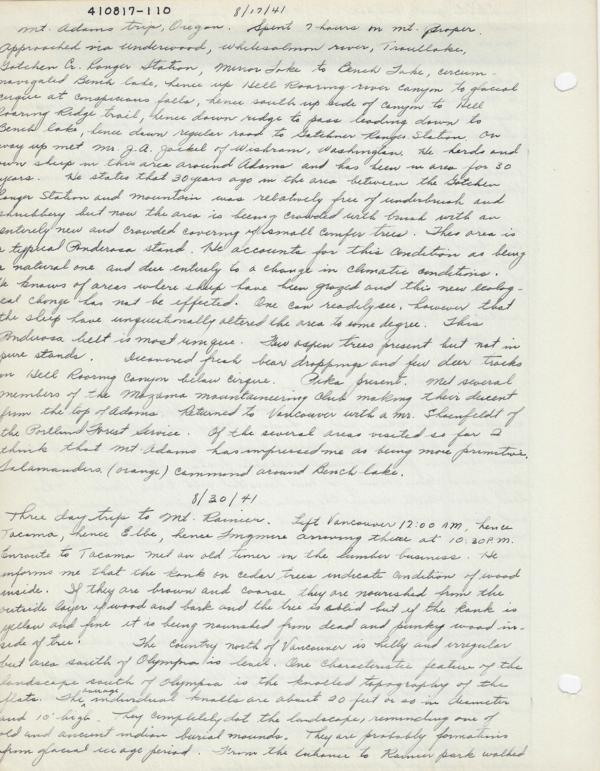 410817-110 8/17/41
Mt. Adams trip, Oregon. Spent 7 hours on mt. proper.
Approached via underwood, whitesalmon river, Troutlake,
Gotchen Cr. Ranger Station, Mirror Lake to Bench Lake, circum-
navigated Bench lake, hence up Hell Roaring river canyon to glacial
cirque at conspicuous falls, hence south up side of canyon to Hell
Roaring Ridge trail, hence down ridge to pass leading down to
Bench lake, hence down regular road to Gotchner Ranger Station. On
way up met Mr. J.A. Jaekel of Wishram, Washington. He herds and
own sheep in this area around Adams and has been in area for 30
years. He states that 30 years ago in the area between the Gotchen
Ranger Station and mountain was relatively free of underbrush and
shrubbery but now the area is being crowded with brush with an
entirely new and crowded covering of small conifer trees. This area is
a typical Ponderosa stand. He accounts for this condition as being
a natural one and due entirely to a change in climatic conditions.
He knows of areas where sheep have been grazed and this new ecolog-
ical change has not be effected. One can readily see, however that
the sheep have unquestionally altered the area to some degree. This
Ponderosa belt is most unique. Few aspen trees present but not in
pure stands. Discovered fresh bear droppings and few deer tracks
in Hell Roaring Canyon below cirque. Pika present. Met several
members of the Mazama mountaineering Club making their descent
from the top of Adams. Returned to Vancouver with a Mr. of
the Portland Forest Service. Of the several areas visited so far I
think that Mt Adams has impressed me as being more primitive.
Salamanders (orange) common around Bench lake.
8/30/41
Three day trip to Mt. Rainier. Left Vancouver 12:00 AM, hence
Tacoma, hence Elbe, hence Longmire arriving there at 10:30 P.M.
Enroute to Tacoma met an old timer in the lumber business. He
informs me that the konk on cedar trees indicate condition of wood
inside. If they are brown and coarse they are nourished from the
outside layer of wood and bark and the tree is solid but if the konk is
yellow and fine it is being nourished from dead and punky wood in-
side of tree. The country north of Vancouver is hilly and irregular
but area south of Olympia is level. One characteristic feature of the
landscape south of Olympia is the knolled topography of the
flats. The average individual knolls are about 20 feet or so in diameter
and 10' high. They completely dot the landscape, reminding one of
old and ancient indian burial mounds. They are probably formations
from glacial ice age period. From the entrance to Rainier park walked